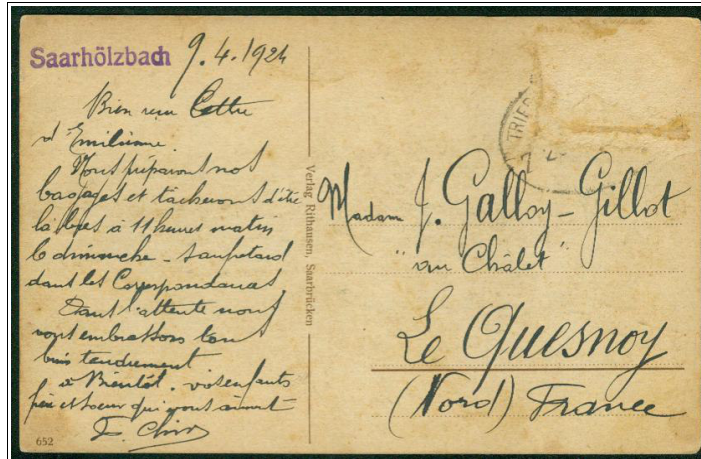 Saarhölzbach 9.4.1924
Bien reçu Lettre
d'Emilienne.
Nous préparons nos
bagages et tacherons d'être
là bas à 11 heures matin
le dimanche - sauf retard
dans les Correspondances
Dans l'attente nous
vous embrassons tous
bien tendrement
à Bientôt. vos enfants
et soeur qui vous aiment
Verlag Rithausen, Saarbrücken
TRIER
7
Madam J. Galloy-Gillot
"au Châlet"
Le Quesnoy
(Nord) France
652